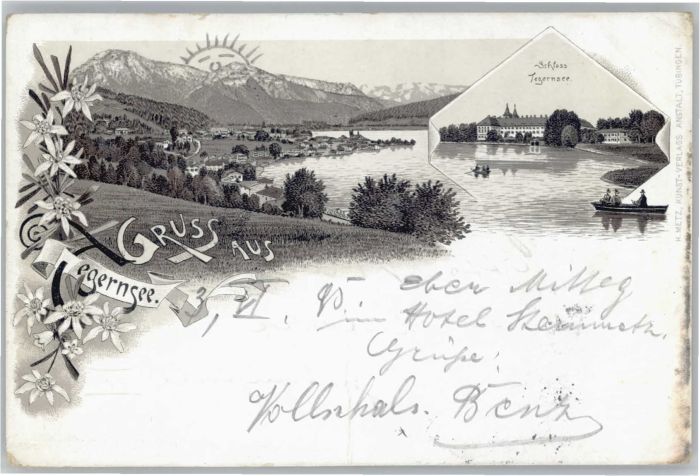 Schloss
Tegernsee.
H. METZ, KUNST-VERLAGS ANSTALT, TÜBINGEN.
GRUSS AUS
Tegernsee.
3, VI. 95 eben Mittag
im Hotel
Grüße!
Benz